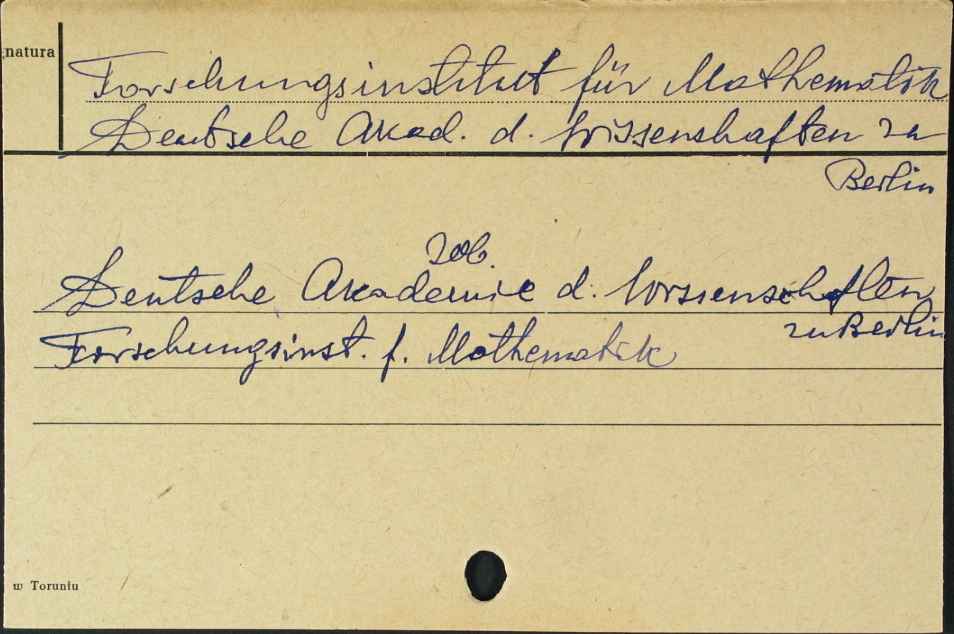 gnatura
Forschungsinstitut für Mathematik
Deutsche Akad. d. Wissenschaften zu
Berlin
zob.
Deutsche Akademie d. Wissenschaften
zu Berlin
Forschungsinst. f. Mathematik
w Toruniu